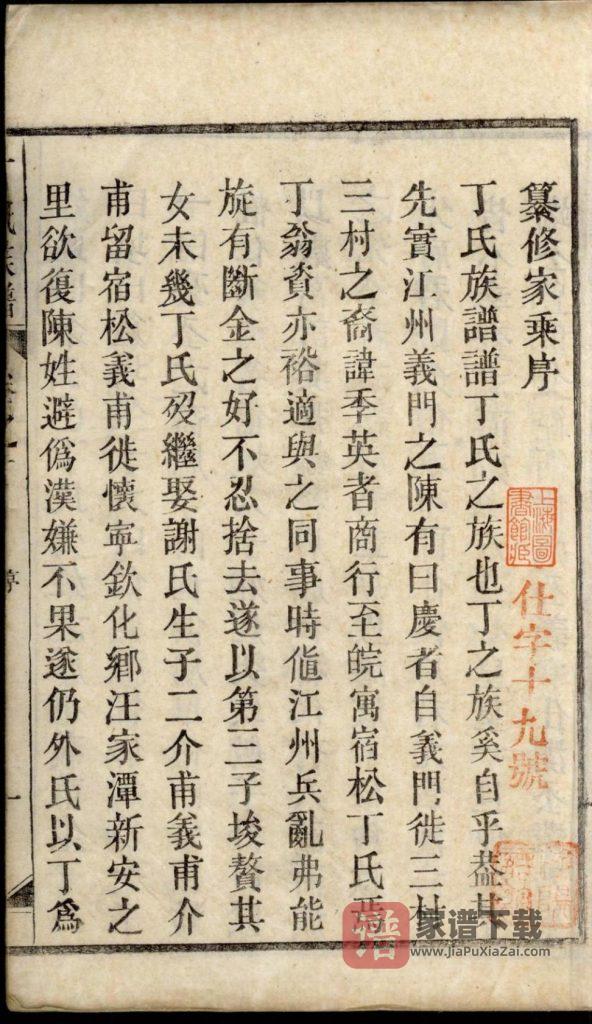 纂修家乘序
丁氏族譜譜丁氏之族也丁之族奚自乎葢其
先實江州義門之陳有曰慶者自義門徙三村
三村之裔諱季英者商行至皖寓宿松丁氏焉
丁翁資亦裕適與之同事時値江州兵亂弗能
旋有斷金之好不忍捨去遂以第三子堎贅其
女未幾丁氏歿繼娶謝氏生子二介甫義甫介
甫留宿松義甫徙懷寧欽化鄉汪家潭新安之
里欲復陳姓避僞漢嫌不果遂仍外氏以丁爲
上海圖
書館藏
仕字十九號
序
一
谱
家谱下载
www.JiaPuXiaZai.com